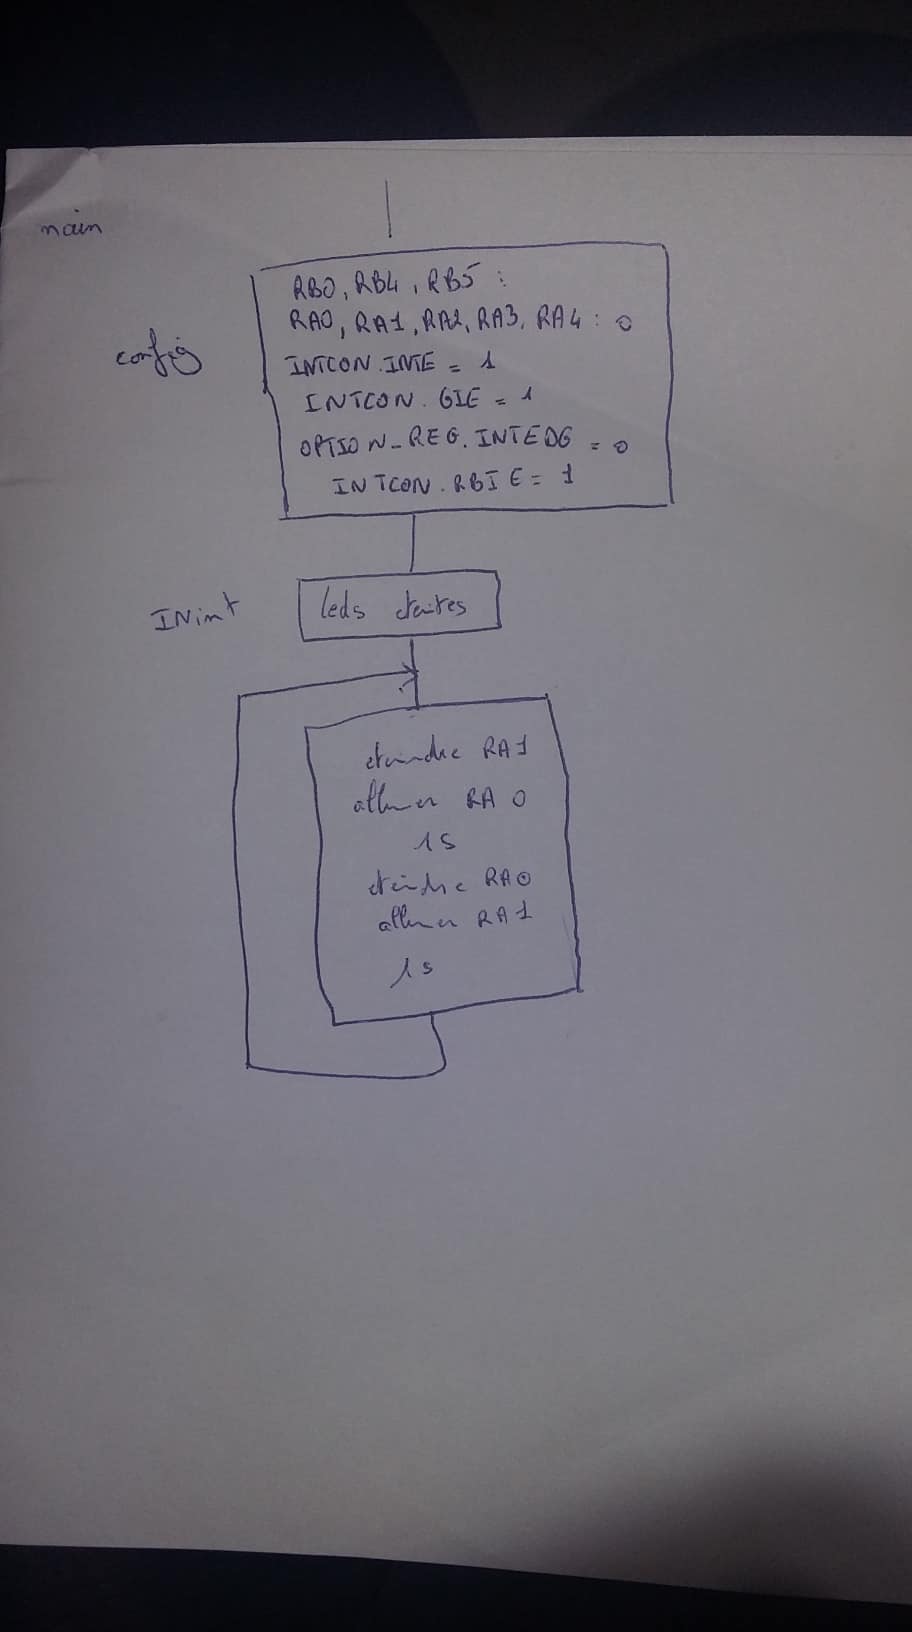 main
config
RB0, RB4, RB5 :
RA0, RA1, RA2, RA3, RA4 : 0
INTCON.INTE = 1
INTCON. GIE = 1
OPTION_REG. INTEDG = 0
INTCON. RBIE = 1
INint
leds éteintes
éteindre RA1
allumer RA 0
1S
éteindre RA0
allumer RA1
1s